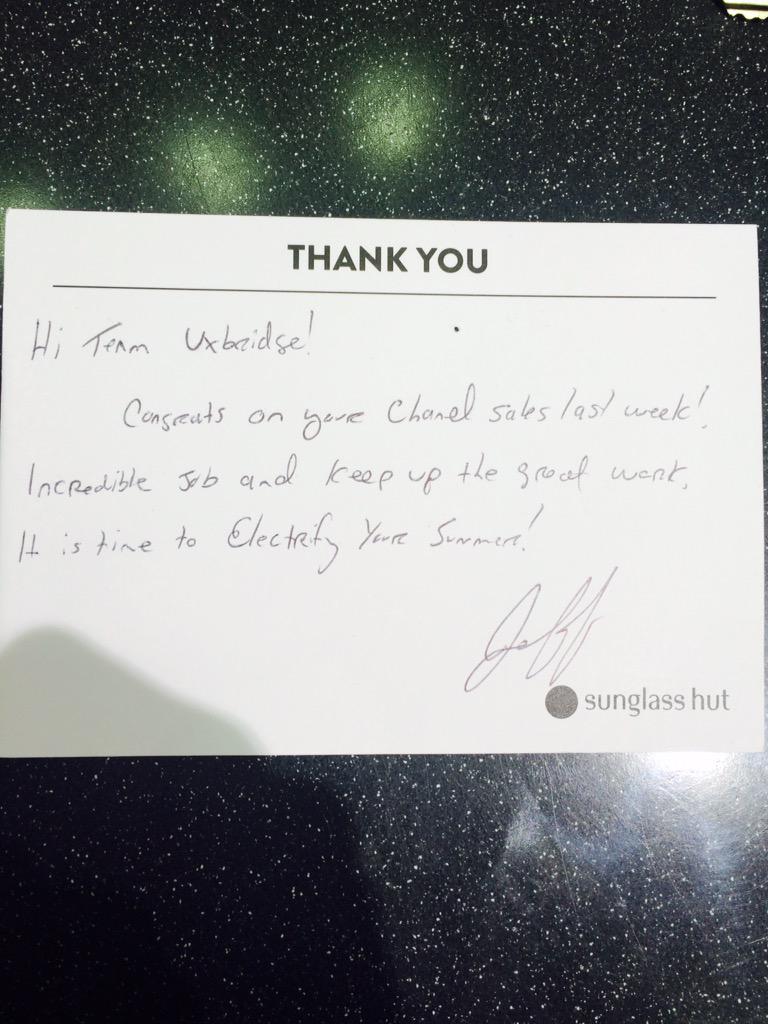 THANK YOU
Hi Team Uxbridge!
Congrats on your Chanel sales last week!
Incredible Job and keep up the great work,
It is time to Electrify Your Summer!
Jeff
sunglass hut